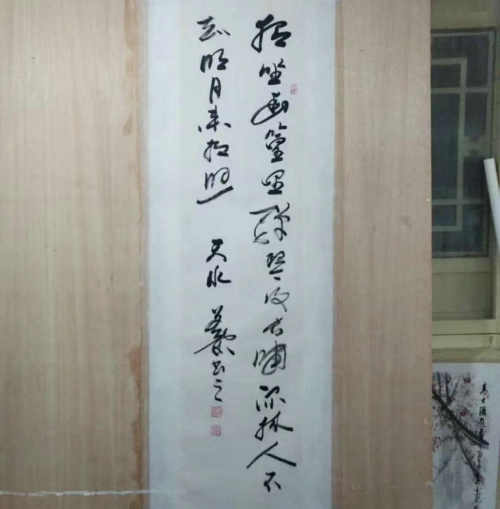 独坐幽篁里弹琴复长啸深林人不
知明月来相照 天水 书之